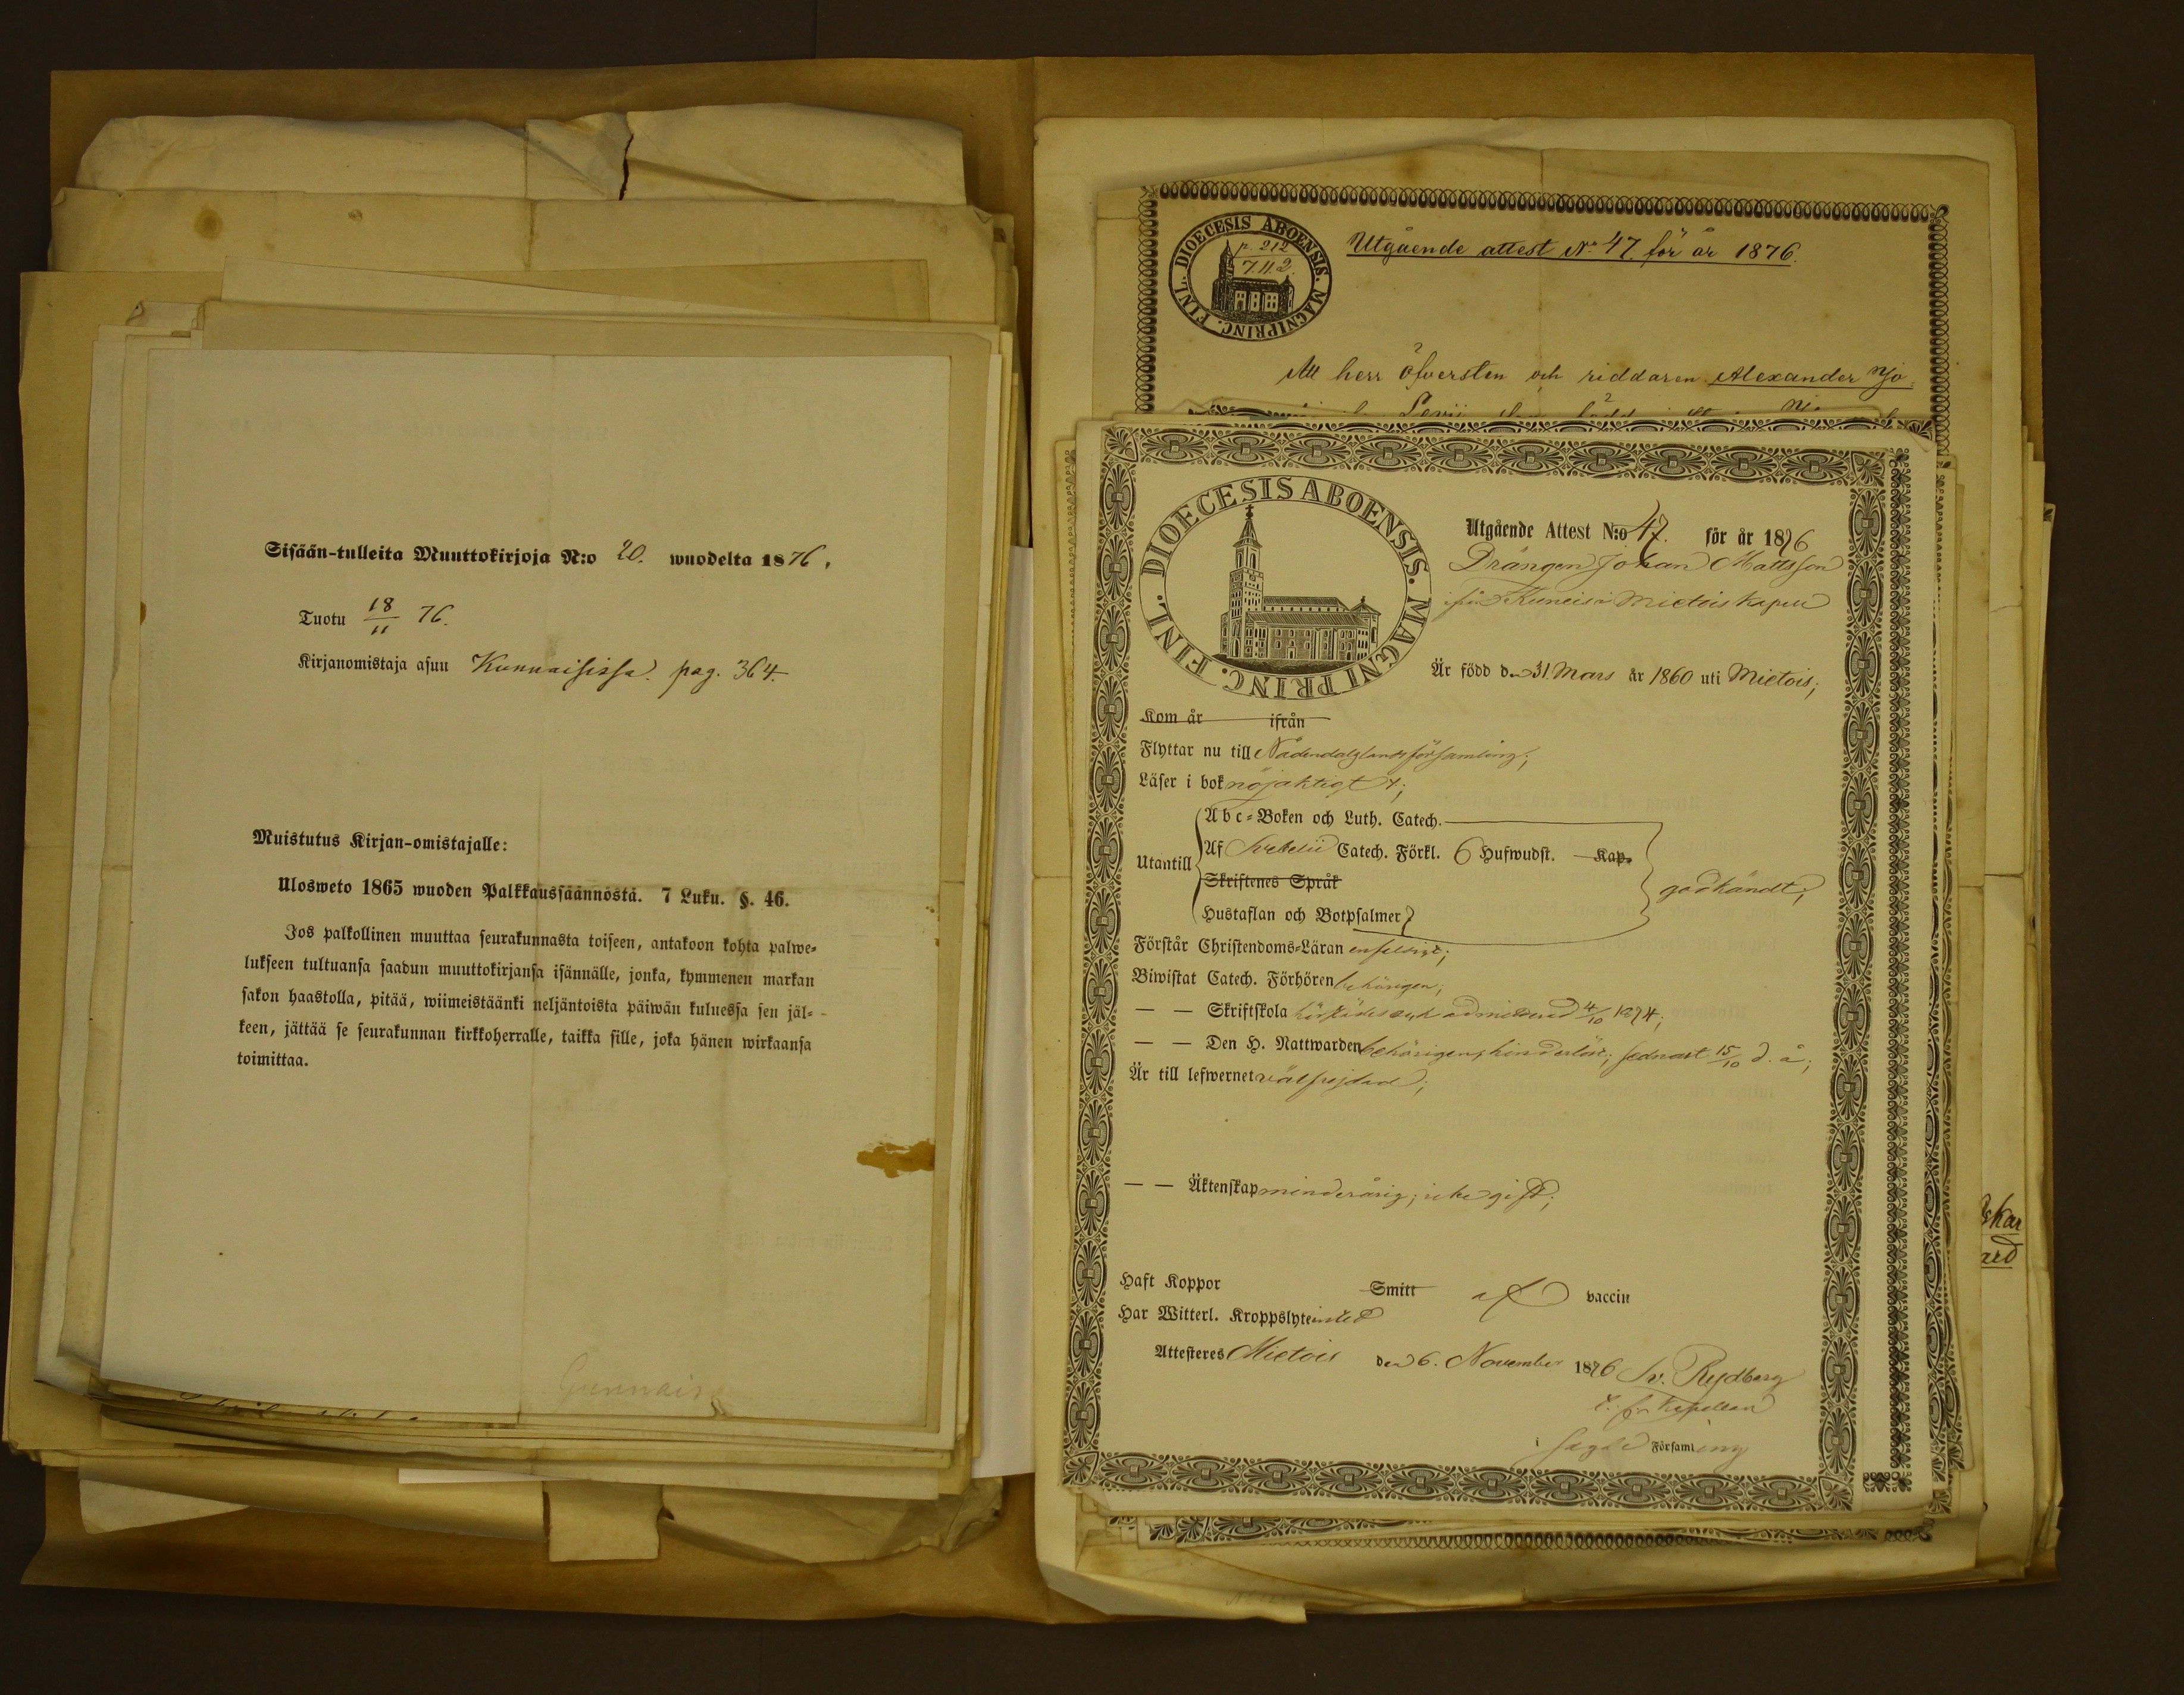 Sisään-tulleita Muuttokirjoja N:o 20. wuodelta 1876.
Tuotu 18/11 76.
Kirjanomistaja asuu Kunnaisissa. pag. 364.
Muistutus Kirjan-omistajalle:
Ulosweto 1865 wuoden Palkkaussäännöstä. 7 Luku. §. 46.
Jos palkollinen muuttaa seurakunnasta toiseen, antakoon kohta palwe-
lukseen tultuansa saadun muuttokirjansa isännälle, jonka, kymmenen markan
sakon haastolla, pitää, wiimeistäänki neljäntoista päiwän kuluessa sen jäl-
keen, jättää se seurakunnan kirkkoherralle, taikka sille, joka hänen wirkaansa
toimittaa.
Gunnais
DIOECESIS ABOENSIS. MAGNI PRINC. FINL.
p. 212
7.11.2.
Utgående attest No 47. för år 1876.
Att herr öfversten och riddaren Alexander
DIOECESIS ABOENSIS. MAGNI PRINC. FINL.
Utgående Attest N:o 47. för år 1876
Drängen Johan Mattsson
ifrån Mietois Kapell
Är född d. 31 Mars år 1860 uti Mietois;
Kom år ifrån
Flyttar nu till Nådendals landsförsamling;
Läser i bok nöjaktigt;
Abc-Boken och Luth. Catech.
Utantill Af Svebelii Catech. Förkl. 6 Hufwudst. Kap.
Skriftenes Språk
godkändt;
Hustaflan och Botpsalmer
Förstår Christendoms-Läran enfaldigt;
Biwistat Catech. Förhören behörigen;
— — Skriftskola admitterad 4/10 1874;
— — Den H. Nattwarden behörigen, hinderlös; sednast 15/10 d. å;
Är till lefwernet välfrejdad;
— — Äktenskap minderårig; icke gift;
Haft Koppor Smitt af vaccin
Har Witterl. Kroppslyte intet
Attesteras Mietois den 6. November 1876 Sv. Rydberg
Kapellan
i sagde Församling